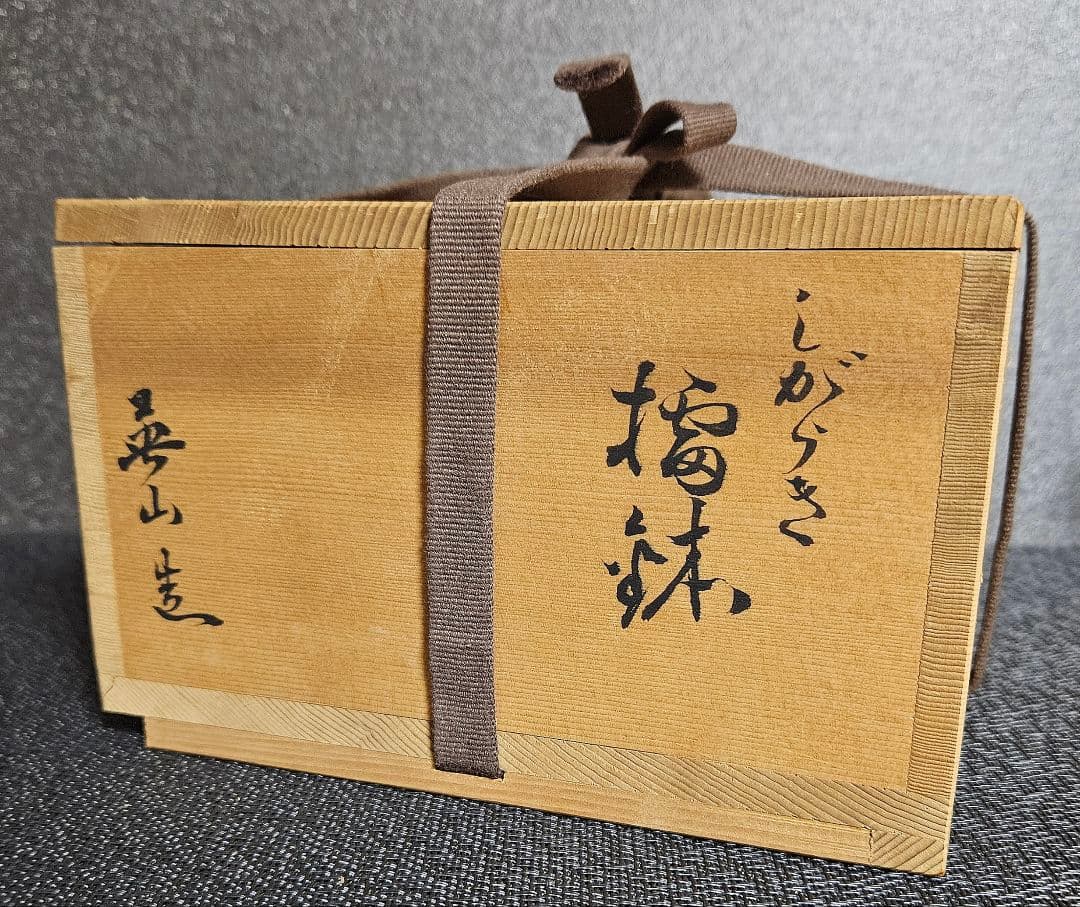 しがらき
擂鉢
山造